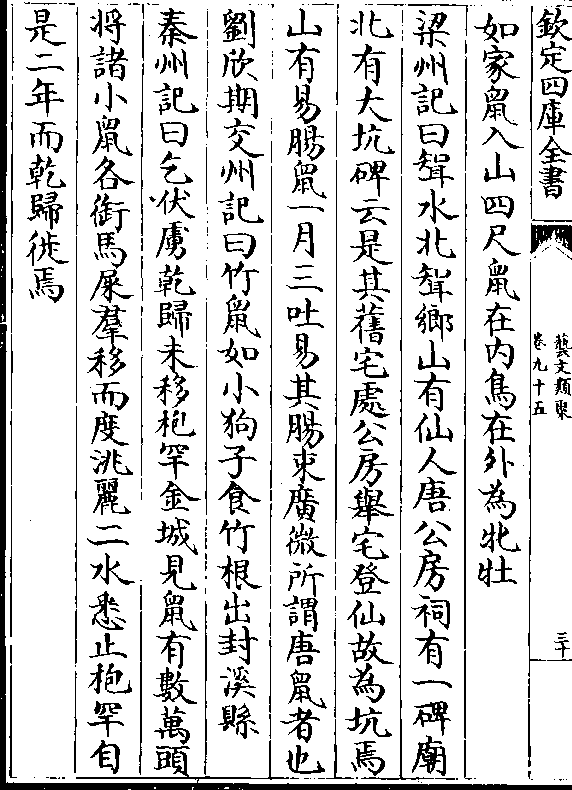 欽定四庫全書
藝文類聚
卷九十五
三十
如家鼠入山四尺鼠在内鳥在外為牝牡
梁州記曰聟水北聟鄉山有仙人唐公房祠有一碑廟
北有大坑碑云是其舊宅處公房舉宅登仙故為坑焉
山有易腸鼠一月三吐易其腸束廣微所謂唐鼠者也
劉欣期交州記曰竹鼠如小狗子食竹根出封溪縣
秦州記曰乞伏虜乾歸未移枹罕金城見鼠有數萬頭
将諸小鼠各銜馬屎羣移而度洮麗二水悉止枹罕自
是二年而乾歸徙焉